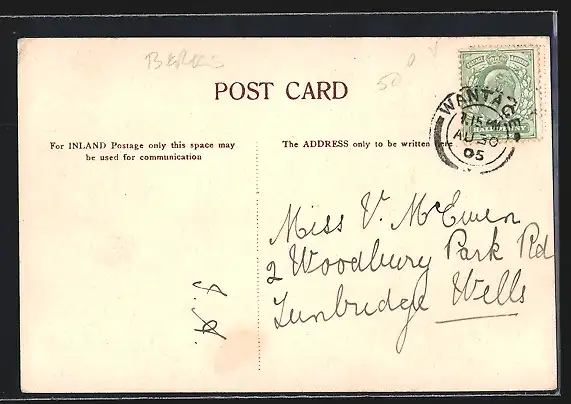 BERKS
50
POST CARD
For INLAND Postage only this space may
be used for communication
The ADDRESS only to be written here
WANTAGE
AU 30
05
HALFPENNY
Miss V. McEwen
2 Woodbury Park Rd
Tunbridge Wells